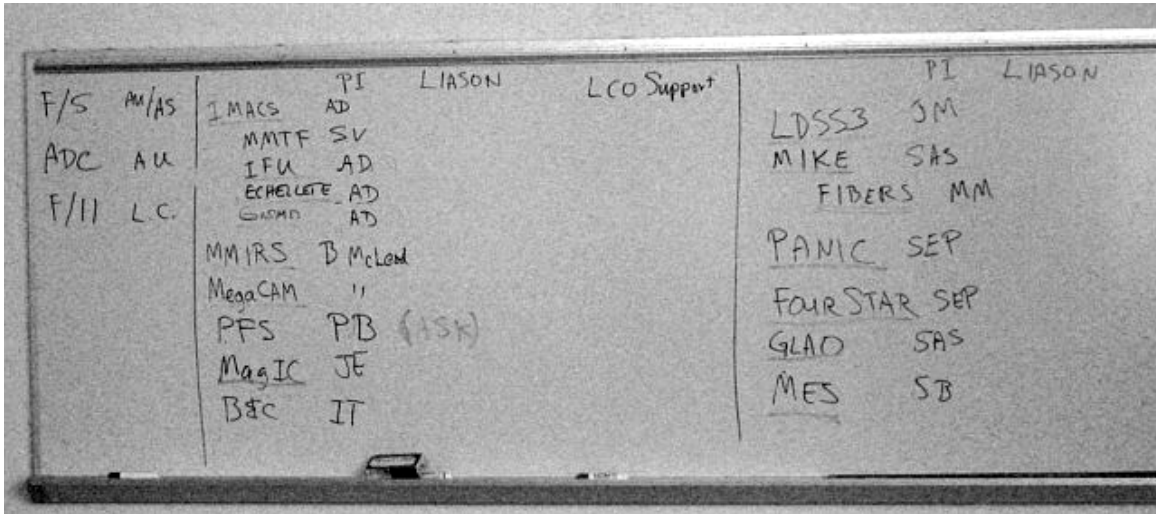 F/5 AM/AS
ADC AU
F/11 L.C.
PI LIASON LCO Support
IMACS AD
MMTF SV
IFU AD
ECHELLETE AD
AD
MMIRS B McLeod
MegaCAM "
PFS PB (ASK)
MagIC JE
B&C IT
PI LIASON
LDSS3 JM
MIKE SAS
FIBERS MM
PANIC SEP
FOURSTAR SEP
GLAO SAS
MES SB